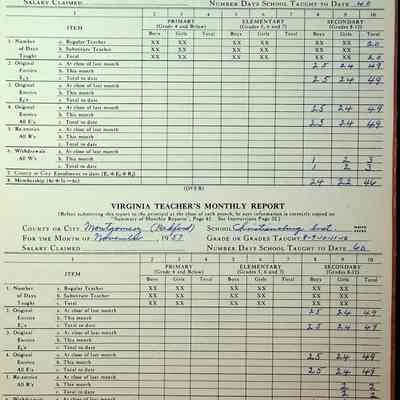 SALARY CLAIMED NUMBER DAYS SCHOOL TAUGHT TO DATE 40
1 2 3 4 5 6 7 8 9 10
ITEM PRIMARY (Grade 4 and Below) ELEMENTARY (Grades 5, 6 and 7) SECONDARY (Grades 8-12)
Boys Girls Total Boys Girls Total Boys Girls Total
1. Number a. Regular Teacher XX XX XX XX XX XX 20
of Days b. Substitute Teacher XX XX XX XX XX XX
Taught c. Total XX XX XX XX XX XX 20
2. Original a. At close of last month 25 24 49
Entries b. This month
E₁'s c. Total to date 25 24 49
4. Original a. At close of last month 25 24 49
Entries b. This month
All E's c. Total to date 25 24 49
5. Re-entries a. At close of last month
All R's b. This month
c. Total to date
6. Withdrawals a. At close of last month
All W's b. This month 1 2 3
c. Total to date 1 2 3
7. County or City Enrollment to date
8. Membership 24 22 46
(OVER)
VIRGINIA TEACHER'S MONTHLY REPORT
(Before submitting this report to the principal at the close of each month, be sure information is correctly copied on
"Summary of Monthly Reports", Page 42. See Instructions Page 22.)
COUNTY OR CITY Montgomery (Radford) SCHOOL Christiansburg Inst.
FOR THE MONTH OF November, 1957 GRADE OR GRADES TAUGHT 8-9-10-11-12
SALARY CLAIMED NUMBER DAYS SCHOOL TAUGHT TO DATE 60
1 2 3 4 5 6 7 8 9 10
ITEM PRIMARY (Grade 4 and Below) ELEMENTARY (Grades 5, 6 and 7) SECONDARY (Grades 8-12)
Boys Girls Total Boys Girls Total Boys Girls Total
1. Number a. Regular Teacher XX XX XX XX XX XX
of Days b. Substitute Teacher XX XX XX XX XX XX
Taught c. Total XX XX XX XX XX XX
2. Original a. At close of last month 25 24 49
Entries b. This month
E₁'s c. Total to date 25 24 49
4. Original a. At close of last month 25 24 49
Entries b. This month
All E's c. Total to date 25 24 49
5. Re-entries a. At close of last month
All R's b. This month 2 2
c. Total to date 2 2
6. Withdrawals a. At close of last month